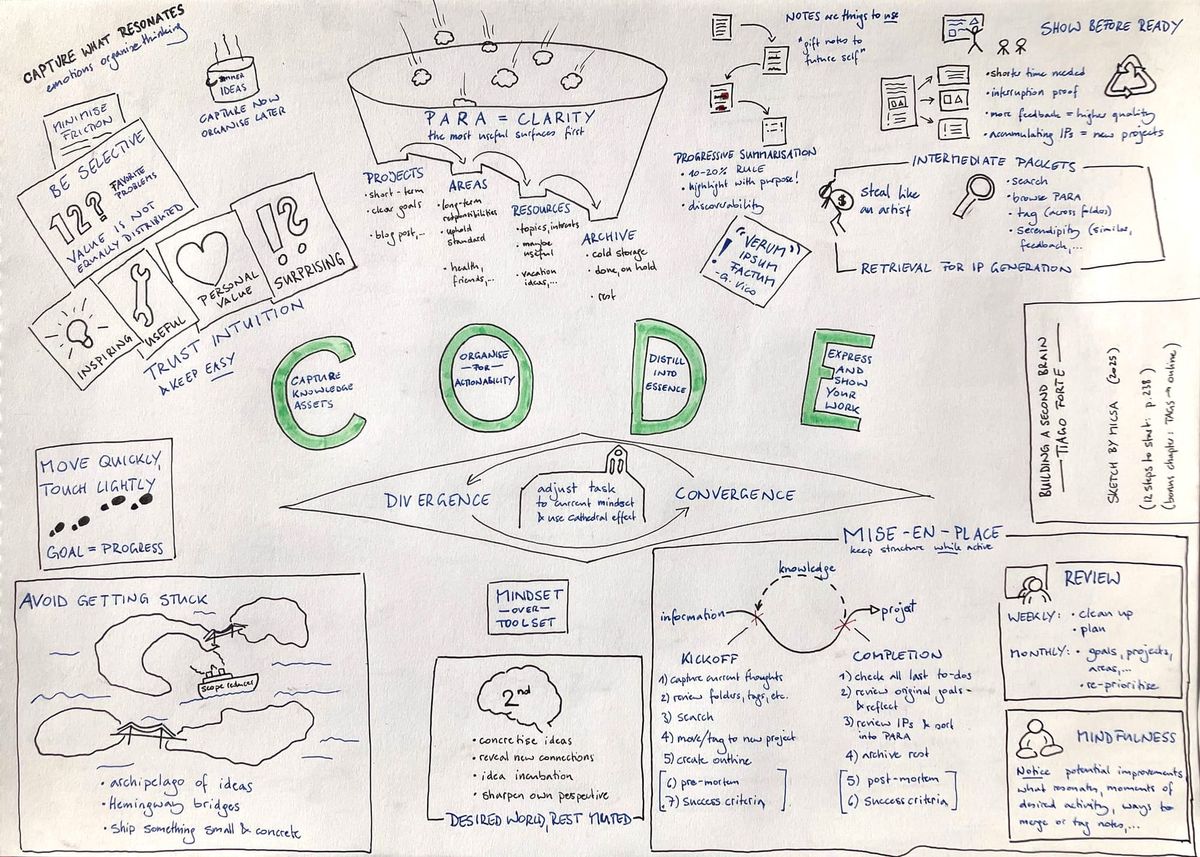 CAPTURE WHAT RESONATES
emotions organise thinking
IDEAS
CAPTURE NOW
ORGANISE LATER
MINIMISE
FRICTION
BE SELECTIVE
12?
FAVORITE
PROBLEMS
VALUE IS NOT
EQUALLY DISTRIBUTED
INSPIRING
USEFUL
PERSONAL
VALUE
!?
SURPRISING
TRUST INTUITION
& KEEP EASY
PARA = CLARITY
the most useful surfaces first
PROJECTS
• short-term
• clear goals
• blog post,...
AREAS
• long-term
responsibilities
• uphold
standard
• health,
friends,...
RESOURCES
• topics, interests
• maybe
useful
• vacation
ideas,...
ARCHIVE
• cold storage
• done, on hold
• rest
NOTES are things to use
"gift notes to
future self"
PROGRESSIVE SUMMARISATION
• 10-20% RULE
• highlight with purpose!
• discoverability
! "VERUM
IPSUM
FACTUM"
- G. Vico
SHOW BEFORE READY
• shorter time needed
• interruption proof
• more feedback = higher quality
• accumulating IPs = new projects
INTERMEDIATE PACKETS
$
steal like
an artist
• search
• browse PARA
• tag (across folders)
• serendipity (similar,
feedback,...
RETRIEVAL FOR IP GENERATION
C O D E
CAPTURE
KNOWLEDGE
ASSETS
ORGANISE
— FOR —
ACTIONABILITY
DISTILL
INTO
ESSENCE
EXPRESS
AND
SHOW
YOUR
WORK
BUILDING A SECOND BRAIN
— TIAGO FORTE —
SKETCH BY MICSA (2025)
(12 steps to start: p. 238)
(bonus chapter: TAGs → online)
MOVE QUICKLY,
TOUCH LIGHTLY
GOAL = PROGRESS
DIVERGENCE
adjust task
to current mindset
& use cathedral effect
CONVERGENCE
AVOID GETTING STUCK
scope reducer
• archipelago of ideas
• Hemingway bridges
• ship something small & concrete
MINDSET
— OVER —
TOOLSET
2nd
• concretise ideas
• reveal new connections
• idea incubation
• sharpen own perspective
DESIRED WORLD, REST MUTED
MISE-EN-PLACE
keep structure while active
knowledge
information
project
KICKOFF
1) capture current thoughts
2) review folders, tags, etc.
3) search
4) move/tag to new project
5) create outline
[6) pre-mortem
7) success criteria]
COMPLETION
1) check all last to-dos
2) review original goals -
& reflect
3) review IPs & sort
into PARA
4) archive rest
[5) post-mortem
6) success criteria]
REVIEW
WEEKLY: • clean up
• plan
MONTHLY: • goals, projects,
areas,...
• re-prioritise
MINDFULNESS
Notice potential improvements
what resonates, moments of
desired activity, ways to
merge or tag notes,...